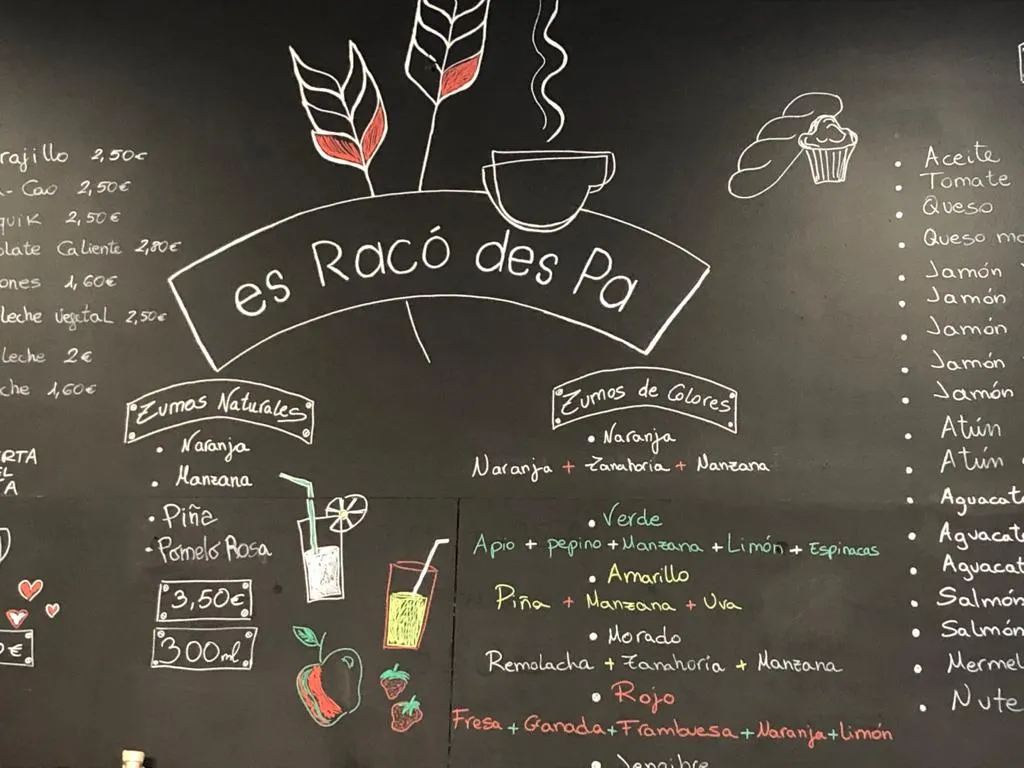 es Racó des Pa
rajillo 2,50€
- Cao 2,50€
quik 2,50€
olate Caliente 2,80€
ones 1,60€
leche vegetal 2,50€
leche 2€
che 1,60€
ERTA
EL
A
€
Zumos Naturales
• Naranja
• Manzana
• Piña
• Pomelo Rosa
3,50€
300ml
Zumos de Colores
• Naranja
Naranja + Zanahoria + Manzana
• Verde
Apio + pepino + Manzana + Limón + Espinacas
• Amarillo
Piña + Manzana + Uva
• Morado
Remolacha + Zanahoria + Manzana
• Rojo
Fresa + Granada + Frambuesa + Naranja + Limón
• Jengibre
• Aceite
• Tomate
• Queso
• Queso mo
• Jamón
• Jamón
• Jamón
• Jamón
• Jamón
• Atún
• Atún
• Aguacat
• Aguacate
• Aguacat
• Salmón
• Salmón
• Mermel
• Nute